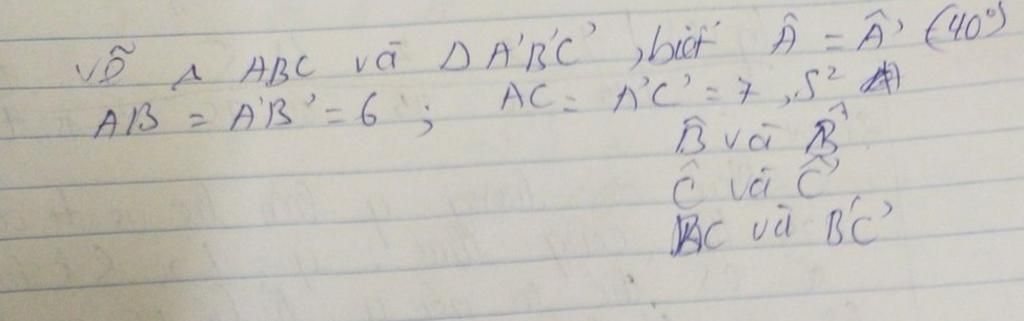 vẽ Δ ABC và Δ A'B'C', biết Â = Â' (40°)
AB = A'B' = 6 ; AC = A'C' = 7, S²
B̂ và B̂'
Ĉ và Ĉ'
BC và B'C'